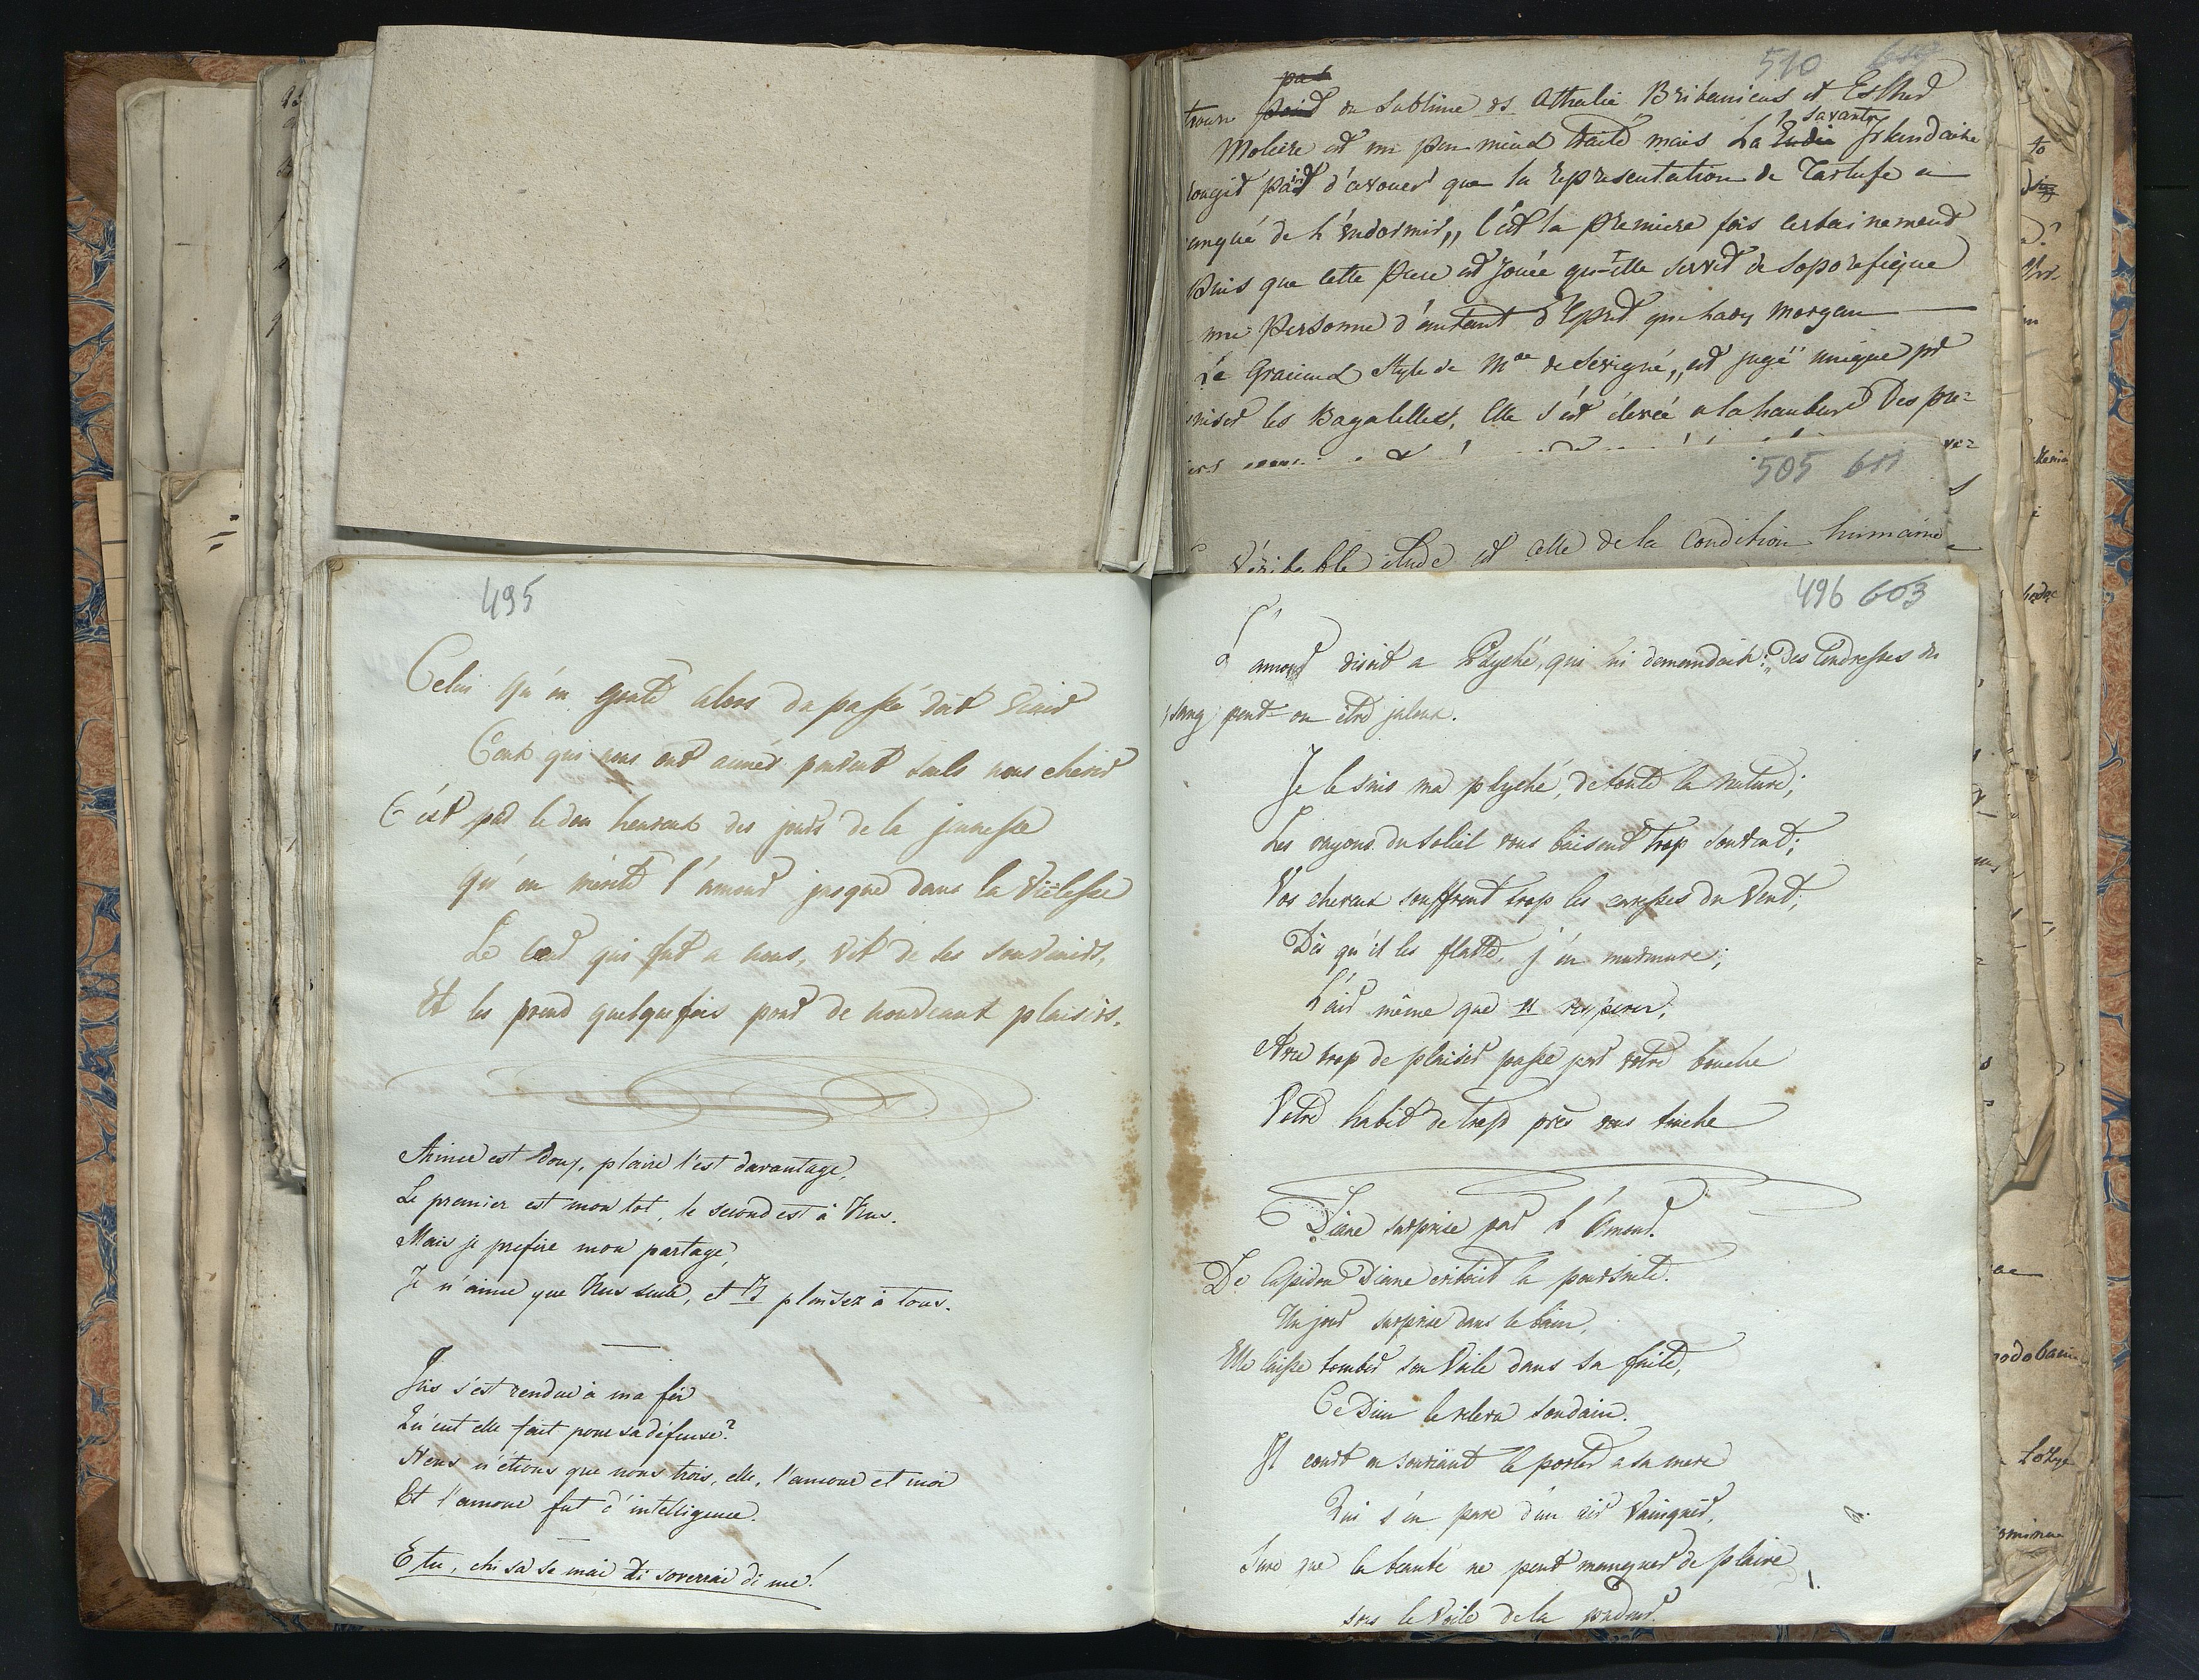 495
Celui qu'on goute alors du passé doit venir
Ceux qui nous ont aimés peuvent seuls nous cherir
C'est par le don heureux des jours de la jeunesse
Qu'on mérite l'amour jusque dans la Vielesse
Le Cœur qui fut a nous, vit de ses souvenirs,
Et les prend quelquefois pour de nouveaux plaisirs.
Aimer est doux, plaire l'est davantage,
Le premier est mon lot, le second est à Vous.
Mais je prefère mon partage,
Je n'aime que Vous seule, et V plaisez à tous.
Iris s'est rendue à ma foi
Qu'eut elle fait pour sa défense?
Nous n'étions que nous trois, elle, l'amour et moi
Et l'amour fut d'intelligence.
E tu, chi sa se mai ti soverrai di me!
510
pas
trouve point du sublime ds Athalie Britanicus et Esther
savante
Moliere est un peu mieux traité mais La Irlandaise
rougit pas d'avouer que la representation de Tartufe a
anqué de l'endormir,, C'est la premiere fois certainement
puis que cette piece est jouée qu'elle servit de soporefique
une personne d'autant d'Esprit que Lady Morgan
Le Gracieux style de Mde de Sévigné,, est jugé unique pr
les Bagatelles. Elle s'est élevée a la hauteur Des pre=
505 611
Véritable étude est celle de la condition humaine
496 603
L'amour disoit a Psyché, qui lui demandait: Des tendresses du
sang peut-on être jaloux.
Je le suis ma psyché, de toute la nature;
Les rayons du soleil vous baisent trop souvent;
Vos cheveux souffrent trop les caresses du Vent;
Dès qu'il les flatte, j'en murmure;
L'air même que V respirez,
Avec trop de plaisir passe par votre bouche
Votre habit de trop près vous touche
Diane surprise par l'Amour.
De Cupidon Diane evitait la poursuite.
Un jour surprise dans le bain,
Elle laisse tomber son Voile dans sa fuite,
Ce Dieu le releva soudain.
Il court en souriant le porter a sa mere
Qui s'en pare d'un air Vainqueur,
Sure que la beauté ne peut manquer de plaire
sous le Voile de la pudeur.